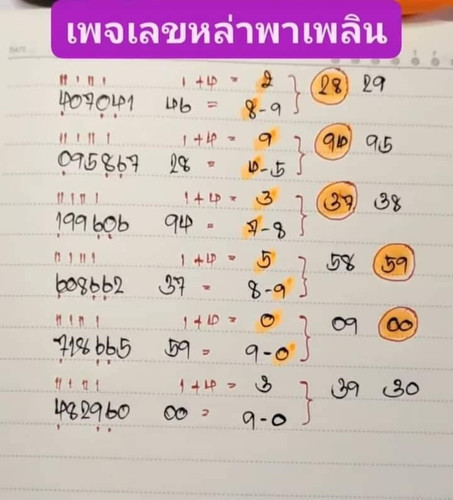 เพจเลขหล่าพาเพลิน
1+4 = 2 28 29
407041 46 = 8-9
1+4 = 9 94 95
095867 28 = 4-5
1+4 = 3 37 38
199606 94 = 7-8
1+4 = 5 58 59
608662 37 = 8-9
1+4 = 0 09 00
718665 59 = 9-0
1+4 = 3 39 30
482960 00 = 9-0